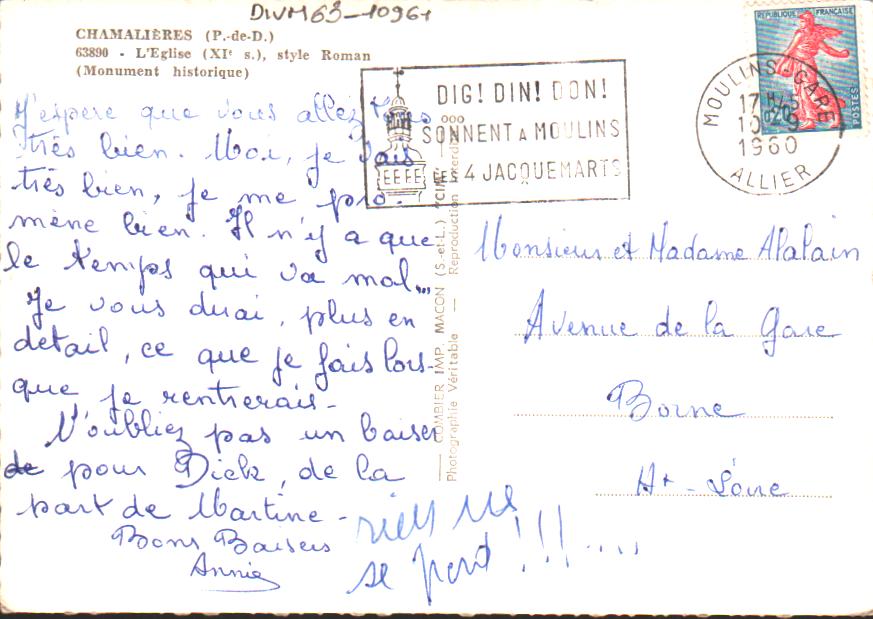 DIVM63-10961
CHAMALIÈRES (P.-de-D.)
63890 - L'Eglise (XIe s.), style Roman
(Monument historique)
J'espère que vous allez tous
très bien. Moi, je vais
très bien, je me pro-
mène bien. Il n'y a que
le temps qui va mal...
Je vous dirai, plus en
détail, ce que je fais lors-
que je rentrerais-
N'oubliez pas un baiser
de pour Dick, de la
part de Martine-
Bons Baisers
Annie
rien ne
se perd !!!....
COMBIER IMP. MACON (S.-et-L.) "CIM"
Photographie Véritable — Reproduction interdite
DIG! DIN! DON!
SONNENT A MOULINS
LES 4 JACQUEMARTS
MOULINS GARE
17H45
10-9
1960
ALLIER
REPUBLIQUE FRANÇAISE
0,20
POSTES
Monsieur et Madame Alalain
Avenue de la Gare
Borne
Hte-Loire